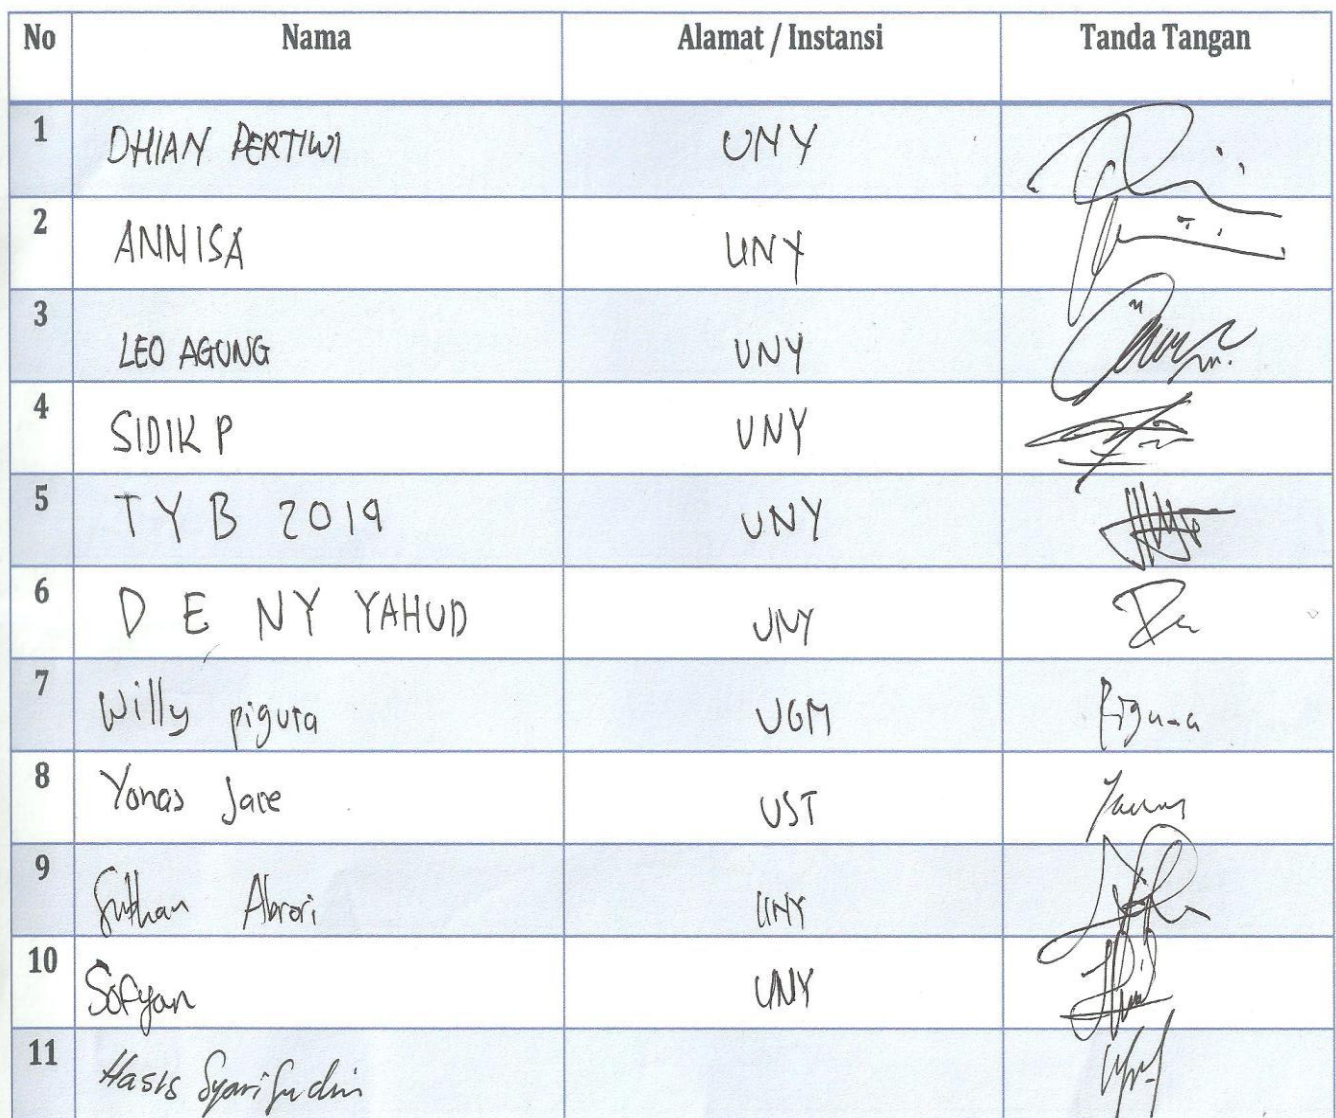 No Nama Alamat / Instansi Tanda Tangan
1 DHIAN PERTIWI UNY
2 ANNISA UNY
3 LEO AGUNG UNY
4 SIDIK P UNY
5 TYB 2019 UNY
6 D E NY YAHUD UNY
7 Willy pigura UGM
8 Yonas Jare UST
9 Abrori UNY
10 Sofyan UNY
11 Syarifudin